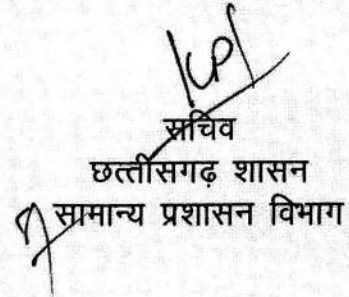 सचिव
छत्तीसगढ़ शासन
सामान्य प्रशासन विभाग